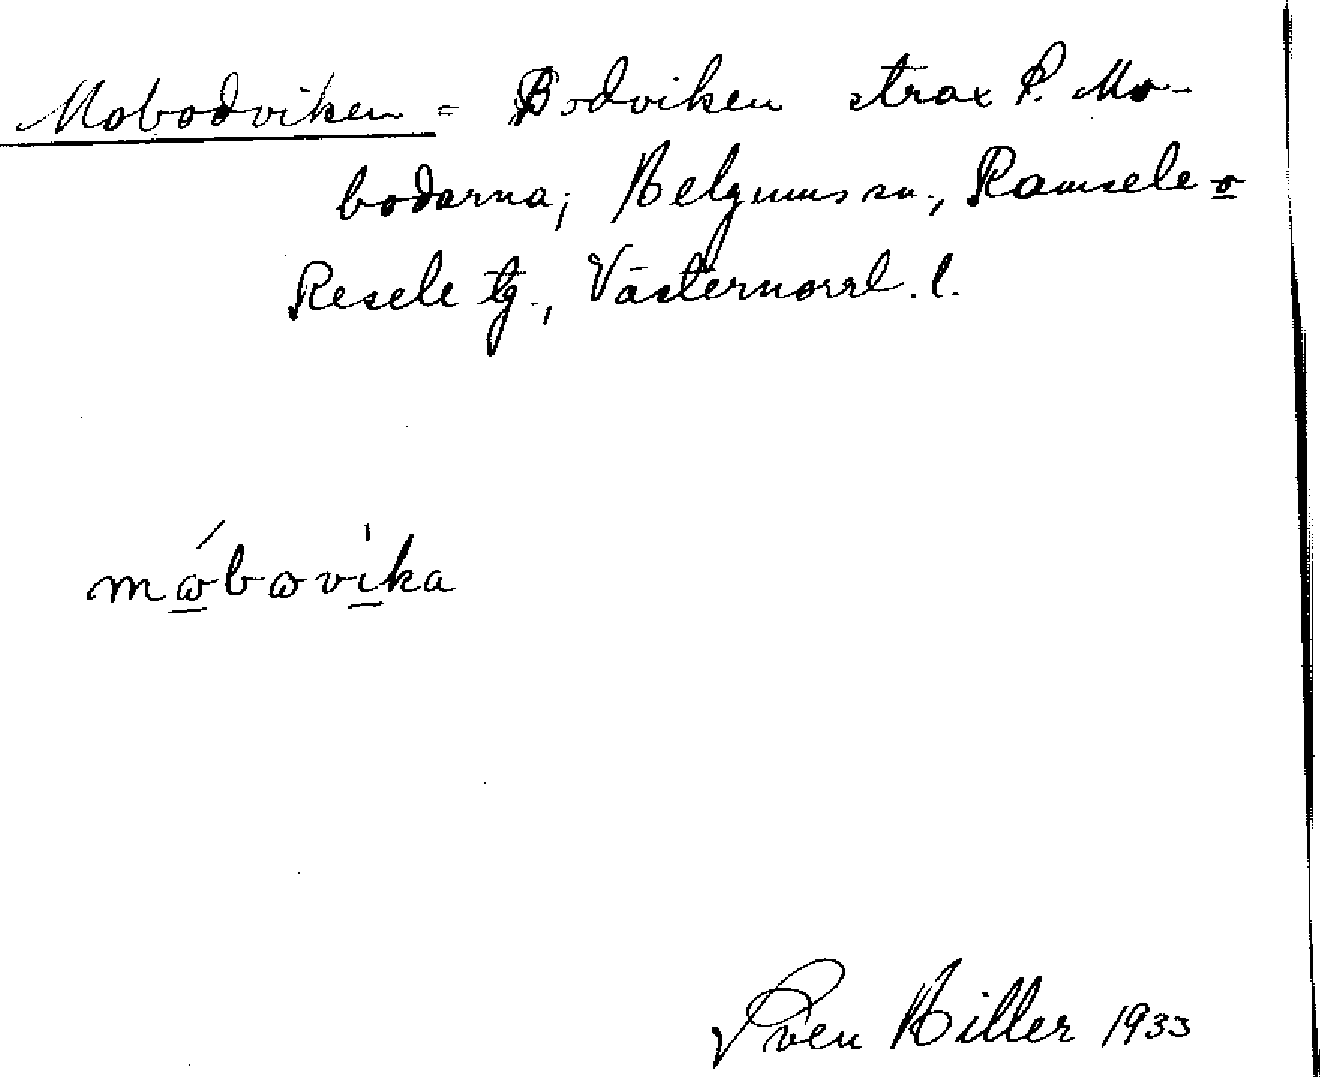 Mobodviken = Bodviken strax S. Mo-
bodarna; Helgums sn., Ramsele o
Resele tg., Västernorrl. l.
mώbωvi̍ka
Sven Hiller 1933